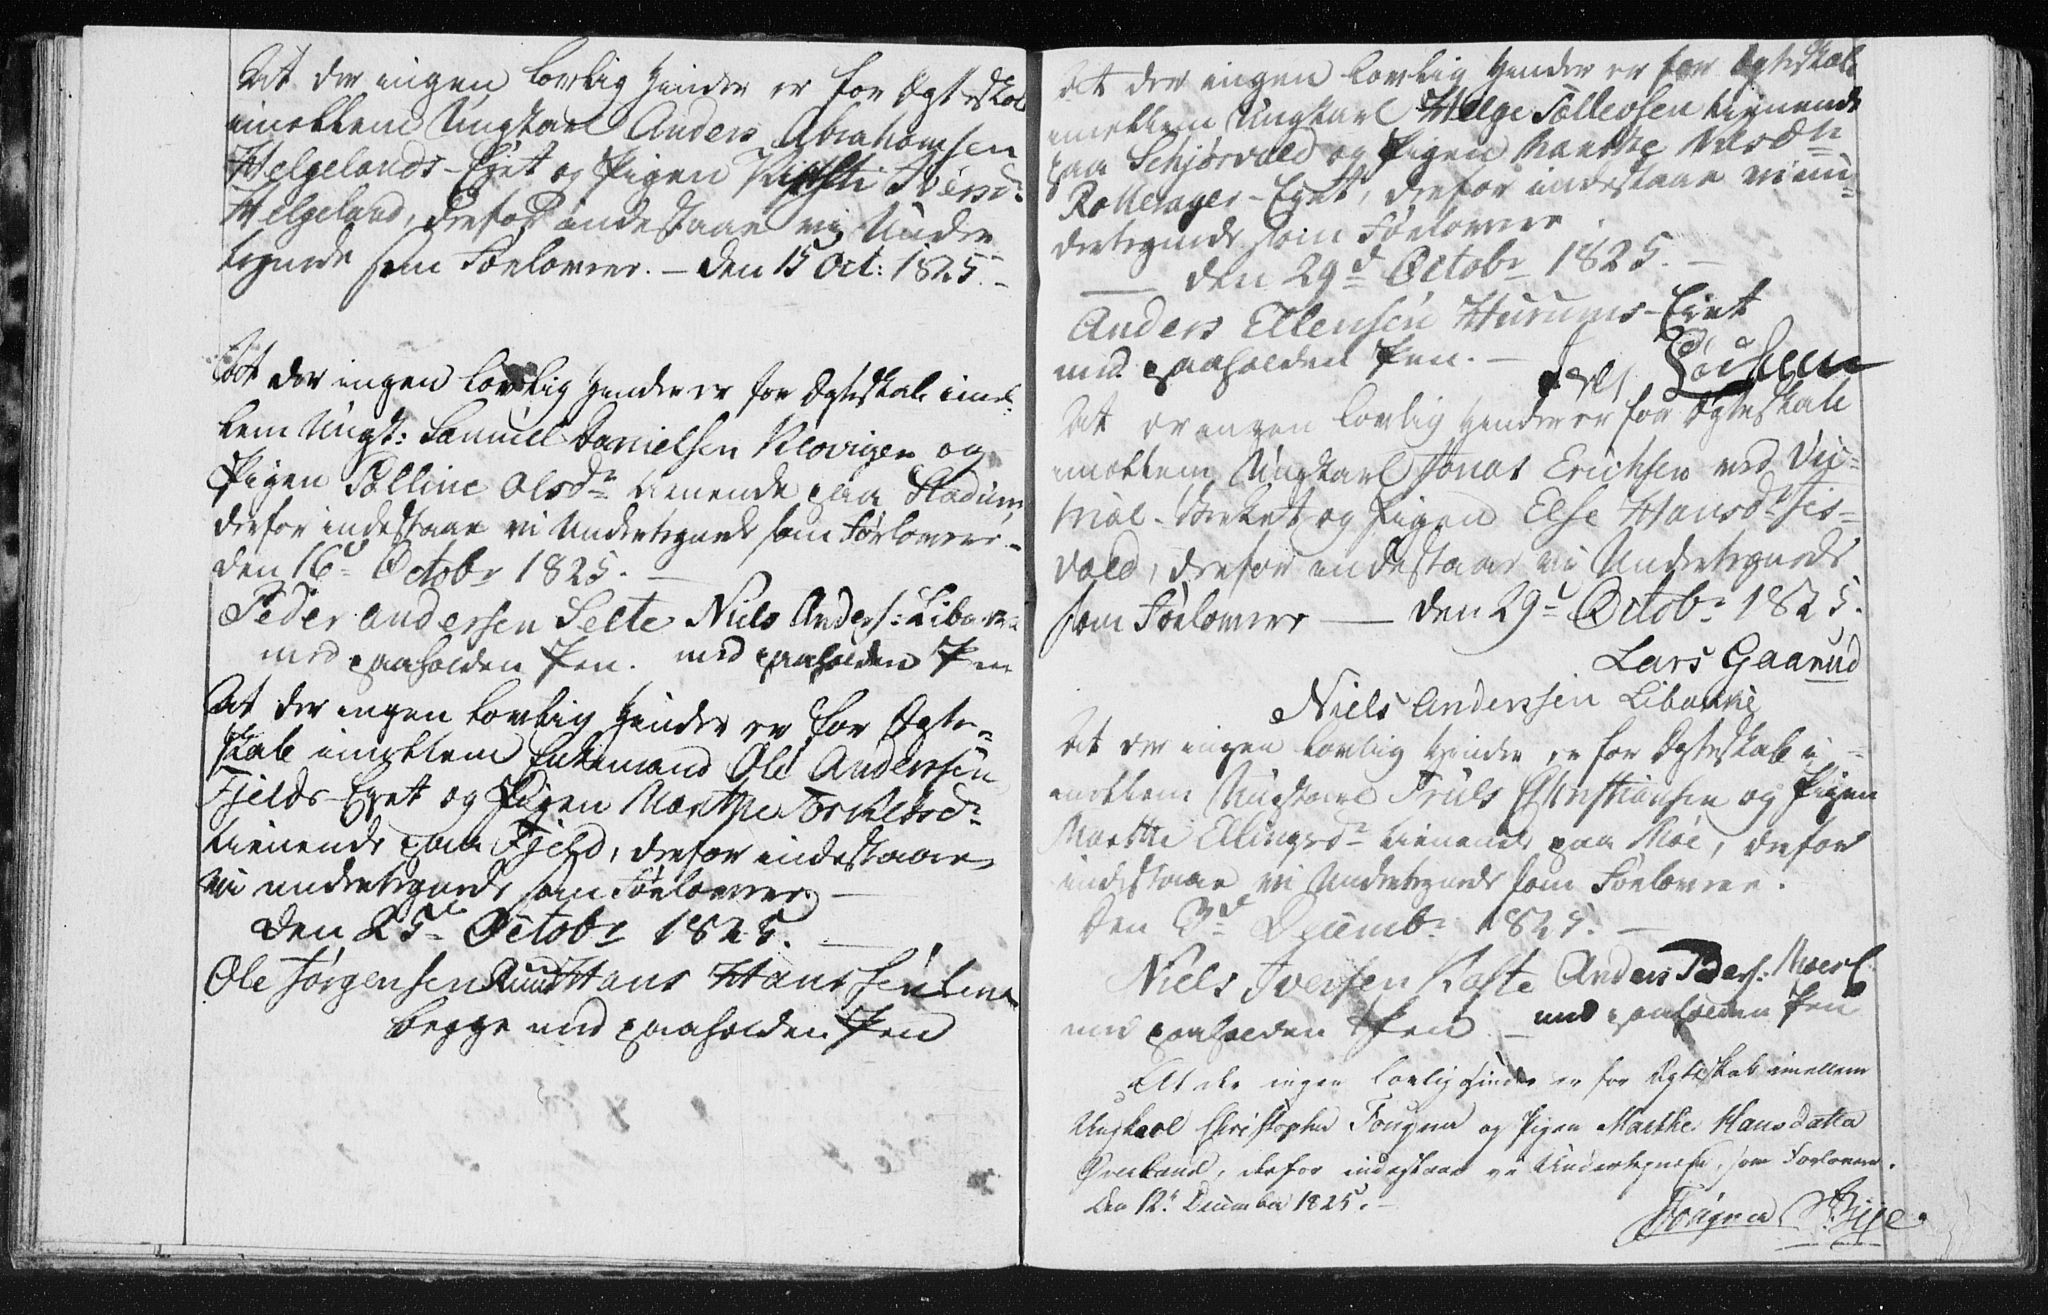 At der ingen lovlig Hinder er for Ægteskab
imellem Ungkarl Anders Abrahamsen
Helgelands-Eyet og Pigen Kirsti Iversd:
Helgeland, derfor indestaae vi Under
tegnede som Forlovere. – den 15 Oct: 1825. –
At der ingen lovlig Hinder er for Ægteskab imel-
lem Ungk: Samuel Danielsen Klovigen og
Pigen Pølline Olsdr tienende paa Stadum
derfor indestaae vi Undertegnede som Forlovere. –
den 16d Octobr 1825. –
Peder Andersen Selte Niels Anders: Libakke
med paaholden Pen. med paaholden Pen
At der ingen lovlig Hinder er for Ægte-
skab imellem Enkemand Ole Andersen
Fjelds-Eyet og Pigen Marthe Torkelsdr
tienende paa Fjeld, derfor indestaae
vi undertegnede som Forlovere. –
den 25d Octobr 1825. –
Ole Jørgensen Ruud Hans Hansen
begge med paaholden Pen
At der ingen lovlig Hinder er for Ægteskab
imellem Ungkarl Helge Tollevsen tienende
paa Schjørvold og Pigen Marthe Olsdtr
Rollerager-Eyet, derfor indestaae vi un-
dertegnede som Forlovere
— den 29d Octobr 1825. –
Anders Ellensen Hurums-Eyet
med paaholden Pen. –
At der ingen lovlig Hinder er for Ægteskab
imellem Ungkarl Jonas Erichsen ved Vii-
kirket og Pigen Else Hansdr
vold, derfor indestaae vi Undertegnede
som Forlovere — den 29d Octobr 1825.
Lars Gaarud
Niels Anderssen Libakke
At der ingen lovlig Hinder er for Ægteskab i-
mellem Ungkarl Truls Christiansen og Pigen
Marthe Ellingsdr tienende paa Moe, derfor
indestaae vi Undertegnede som Forlovere.
Den 3d Decembr 1825. –
Niels Iversen Anders Peders: Moe
med paaholden Pen. – med paaholden Pen
At der ingen lovlig Hinder er for Ægteskab imellem
Ungkarl Christopher Fougner og Pigen Marthe Hansdatter
Overland, derfor indestaae vi Undertegnede, som Forlovere.
Den 12te December 1825. –
Fougner